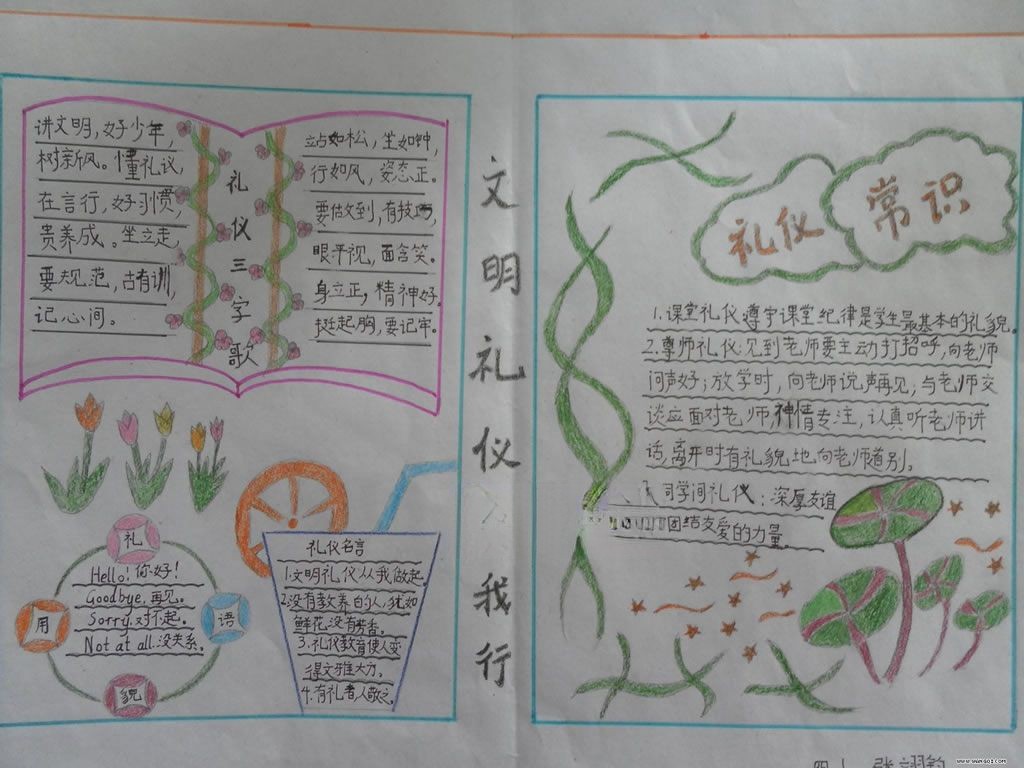 讲文明，好少年，
树新风。懂礼议，
在言行，好习惯，
贵养成。坐立走，
要规范，古有训，
记心间。
礼仪三字歌
站如松，坐如钟，
行如风，姿态正。
要做文到，有技巧，
眼平视，面含笑。
身立正，精神好。
挺起胸，要记牢。
礼
貌
用
语
Hello! 你好!
Goodbye, 再见。
Sorry, 对不起。
Not at all. 没关系。
礼仪名言
1.文明礼仪从我做起。
2.没有教养的人，犹如
鲜花没有芳香。
3.礼仪教育使人变
得文雅大方。
4.有礼者人敬之。
文明礼仪
我行
礼仪
常识
1.课堂礼仪:遵守课堂纪律是学生最基本的礼貌。
2.尊师礼仪:见到老师要主动打招呼，向老师
问声好；放学时，向老师说声再见；与老师交
谈应面对老师，神情专注，认真听老师讲
话，离开时有礼貌地向老师道别。
同学间礼仪：深厚友谊
团结友爱的力量。
www.wangqi.com